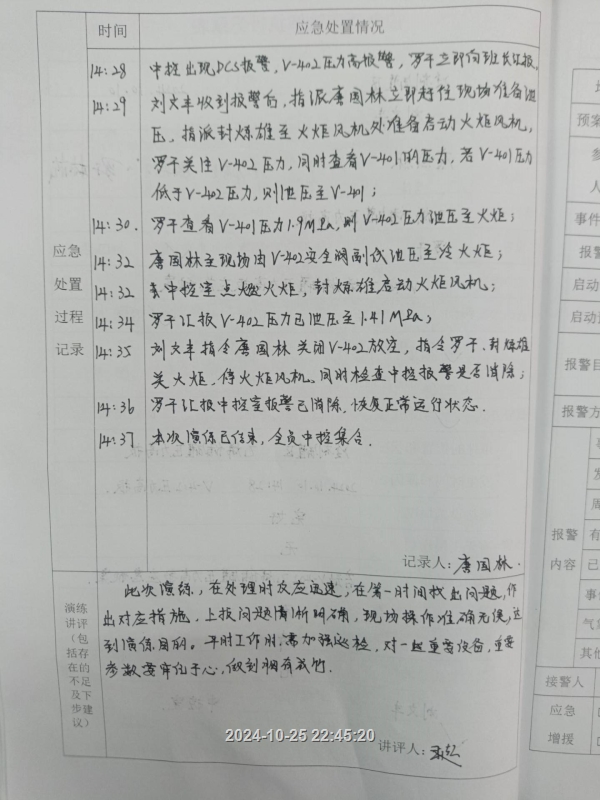 时间 应急处置情况
14:28 中控出现DCS报警，V-402压力高报警，罗干立即向班长汇报。
14:29 刘文丰收到报警后，指派唐国林立即赶往现场准备泄
压，指派封炼雄至火炬风机处准备启动火炬风机，
罗干关注V-402压力，同时查看V-401的压力，若V-401压力
低于V-402压力，则泄压至V-401；
14:30. 罗干查看V-401压力1.9MPa，则V-402压力泄压至火炬；
14:32 唐国林至现场由V-402安全阀副线泄压至冷火炬；
14:32 中控室点燃火炬，封炼雄启动火炬风机；
14:34 罗干汇报V-402压力已泄压至1.41MPa；
14:35 刘文丰指令唐国林关闭V-402放空，指令罗干、封炼雄
关火炬，停火炬风机。同时检查中控报警是否消除；
14:36 罗干汇报中控室报警已消除，恢复正常运行状态.
14:37 本次演练已结束，全员中控集合.
应急
处置
过程
记录
记录人：唐国林.
演练
讲评
（包
括存
在的
不足
及下
步建
议）
此次演练，在处理时反应迅速，在第一时间找出问题，作
出对应措施，上报问题清晰明确，现场操作准确无误，达
到演练目的。平时工作时需加强巡检，对一些重要设备，重要
参数要牢记于心，做到胸有成竹.
讲评人：
2024-10-25 22:45:20
预案
参
人
事件
报警
启动
启动
报警目
报警方
报警
内容
发
周
有
已
事件
气象
其他
接警人
应急
增援